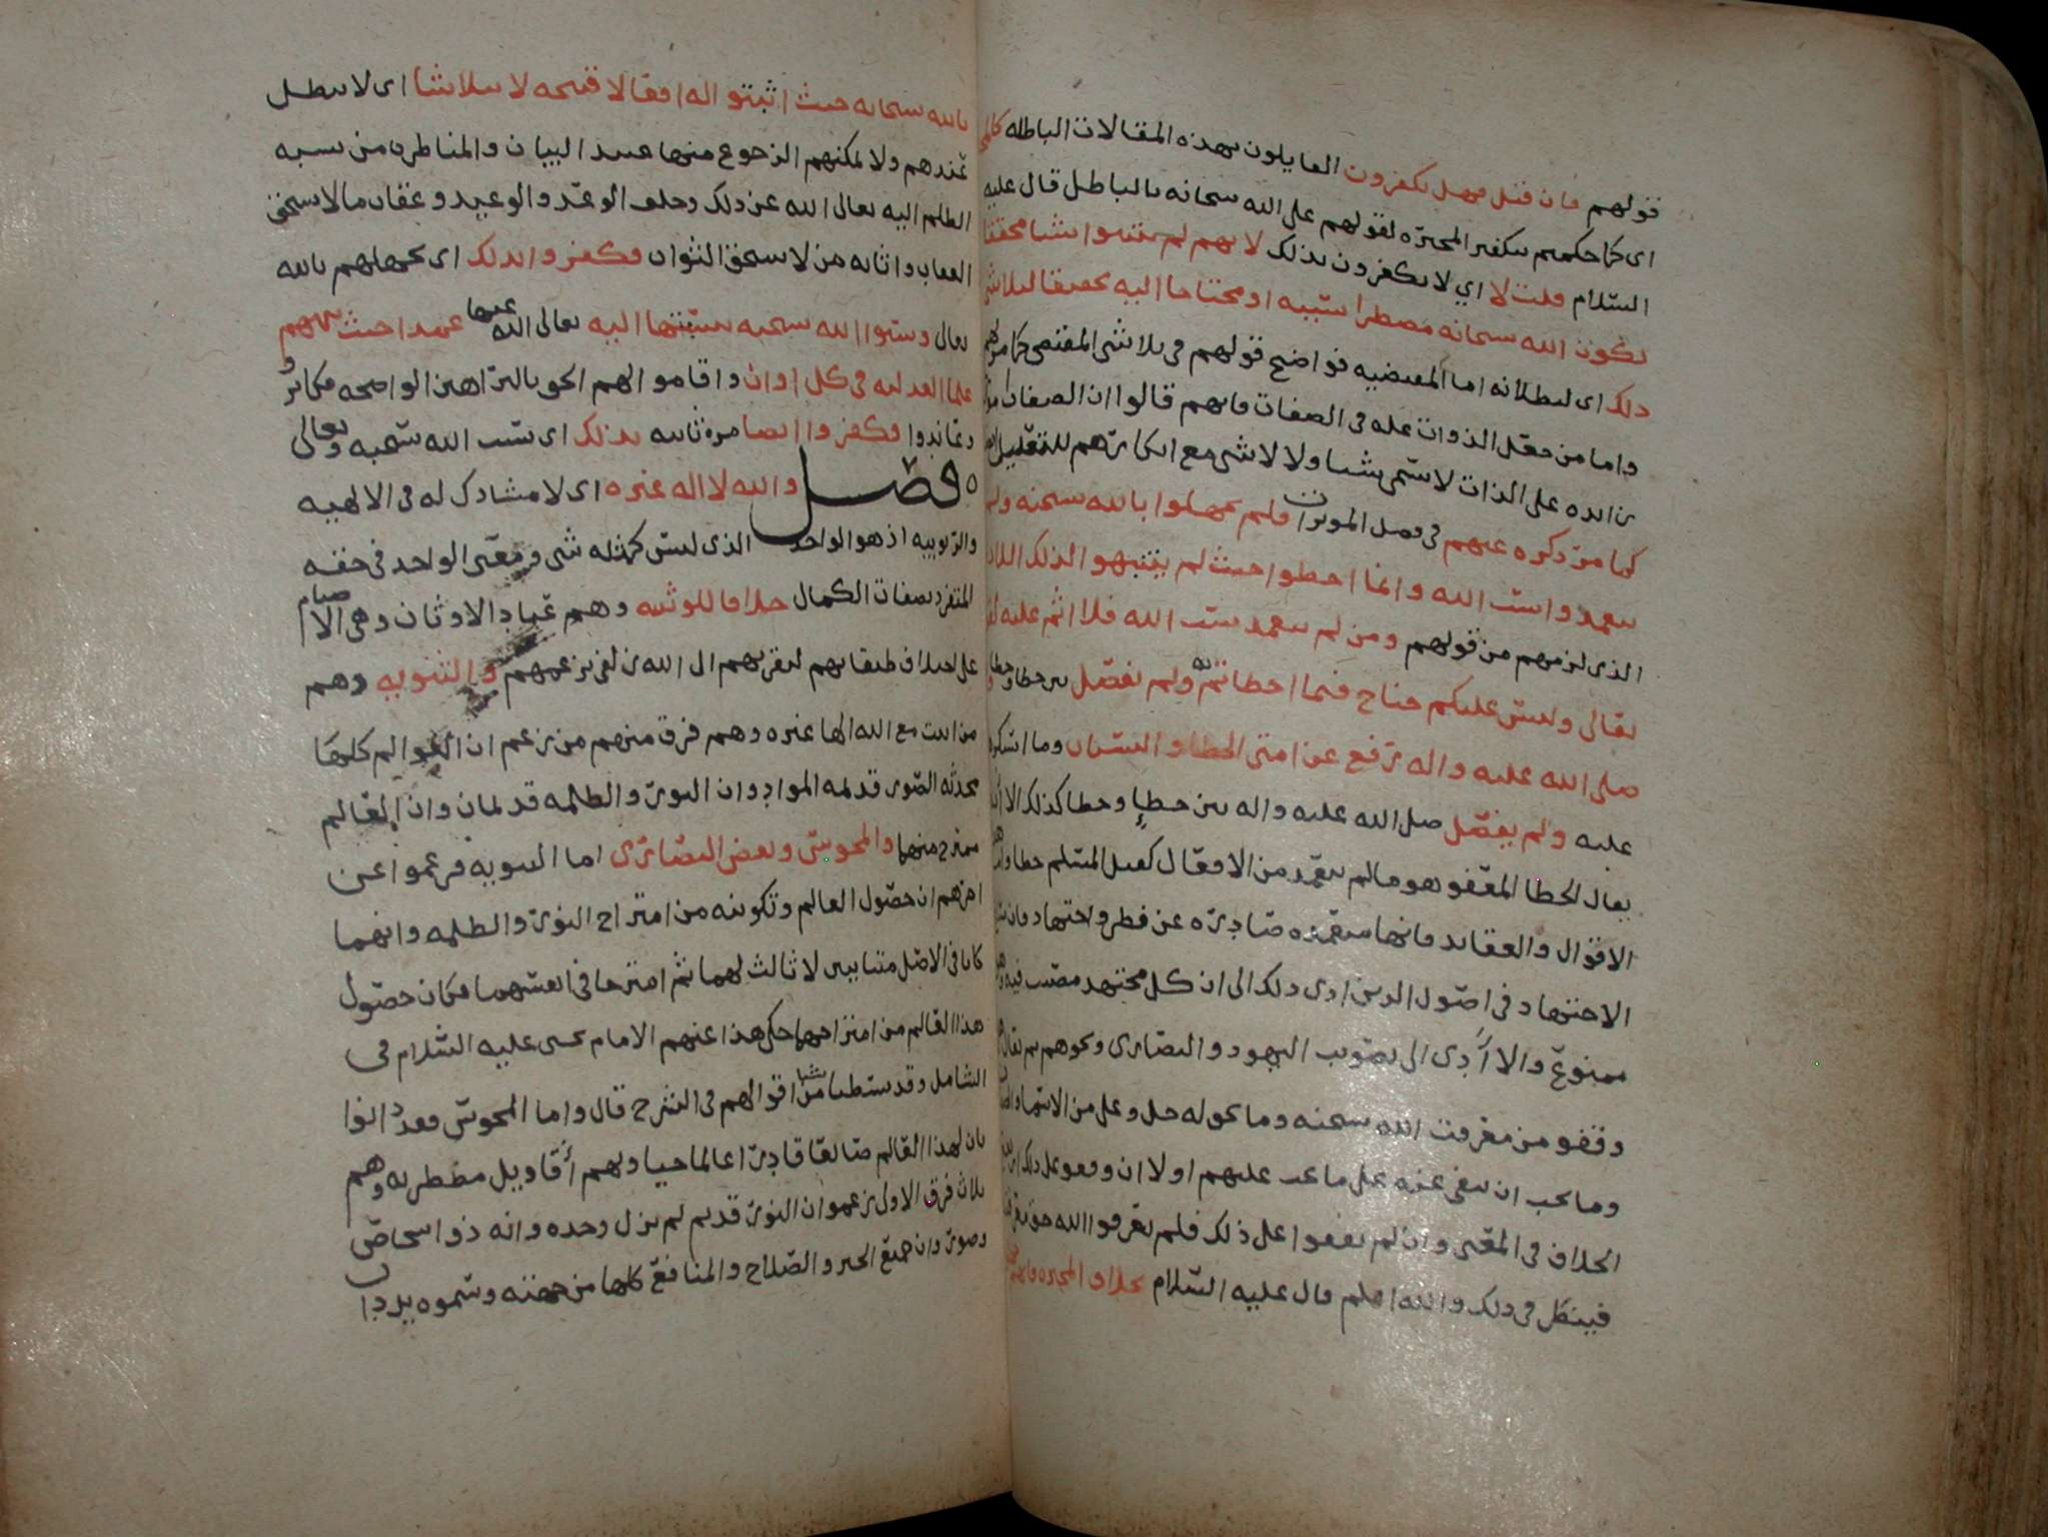 قولهم فان قيل فهل يكفرون القايلون بهذه المقالات الباطله
اى كما حكمتم بتكفير المجبره لقولهم على الله سبحانه بالباطل قال عليه
السلام قلت لا اي لا يكفرون بذلك لانهم لم يثبتوا شيا محققا
يكون الله سبحانه مضطرا بسببه او محتاجا اليه تحقيقا لتلاشى
ذلك اى لبطلانه اما المقتضيه فواضح قولهم فى تلاشى المقتضى كما مر
واما من جعل الذوات عله فى الصفات فانهم قالوا ان الصفات
زايده على الذات لا تسمى شيا ولا لا شى مع انكارهم للتعليل
كما مر ذكره عنهم فى فصل الموثرات فلم يجهلوا بالله سبحنه ولم
يتعمدوا سب الله وانما اخطوا حيث لم يتنبهوا لذلك اللازم
الذى لزمهم من قولهم ومن لم يتعمد سب الله فلا اثم عليه
تعالى وليس عليكم جناح فيما اخطاتم به ولم يفصل بين خطا وخطا
صلى الله عليه واله رفع عن امتى الخطا والنسيان وما استكرهوا
عليه ولم يفصل صلى الله عليه واله بين خطإ وخطا كذلك الا
يقال الخطا المعفو هو ما لم يتعمد من الافعال كقتل المسلم خطا واما
الاقوال والعقايد فانها متعمده صادره عن فطر واجتهاد فان
الاجتهاد فى اصول الدين ادى ذلك الى ان كل مجتهد مصيب فيه
ممنوع والا أدى الى تصويب اليهود والنصارى ونحوهم ثم يقال
وقفو من معرفت الله سبحنه وما يحق له جل وعلى من الاسما
وما يجب ان ينفى عنه على ما يجب عليهم اولا ان وقعو على ذلك
الخلاف فى المعنى وان لم يقفوا على ذلك فلم يعرفوا الله حق
فينظر فى ذلك والله اعلم قال عليه السلام بخلاف المجبره
بالله سبحانه حيث اثبتوا له افعالا قبيحه لا تتلاشا اى لا تبطل
عندهم ولا يمكنهم الرجوع منها عند البيان والمناظره من نسبه
الظلم اليه تعالى الله عن ذلك وخلف الوعد والوعيد وعقاب ما لا يستحق
العقاب واثابه من لا يستحق الثواب فكفروا بذلك اى بجهلهم بالله
تعالى وسبوا الله سبحنه بنسبتها اليه تعالى الله عنها عمدا حيث نبههم
علما العدليه فى كل اوان واقاموا لهم الحق بالبراهين الواضحه فكابروا
وعاندوا فكفروا ايضا مره ثانيه بذلك اى بسب الله سبحنه وتعالى
فصل والله لا اله غيره اى لا مشارك له فى الالهيه
والربوبيه اذ هو الواحد الذى ليس كمثله شى ومعنى الواحد فى حقه
المتفرد بصفات الكمال خلافا للوثنيه وهم عباد الاوثان وهى الاصنام
على اختلاف طبقاتهم لتقربهم الى الله زلفى بزعمهم والثنويه وهم
من اثبت مع الله الها غيره وهم فرق منهم من يزعم ان العوالم كلها
محدثه الصور قديمه المواد وان النور والظلمه قديمان وان العالم
ممتزج منهما والمجوس وبعض النصارى اما الثنويه فزعموا عن
اخرهم ان حصول العالم وتكونه من امتزاج النور والظلمه وانهما
كانا فى الاصل متباينين لا ثالث لهما ثم امتزجا فى انفسهما فكان حصول
هذا العالم من امتزاجهما حكى هذا عنهم الامام يحيى عليه السلام فى
الشامل وقد بسطنا شيا من اقوالهم فى الشرح قال واما المجوس فقد دانوا
بان لهذا العالم صانعا قادرا عالما حيا ولهم أقاويل مضطربه وهم
ثلاث فرق الاولى زعموا ان النور قديم لم يزل وحده وانه ذو اشخاص
وصور وان جميع الخير والصلاح والمنافع كلها من جهته وسموه يزدان